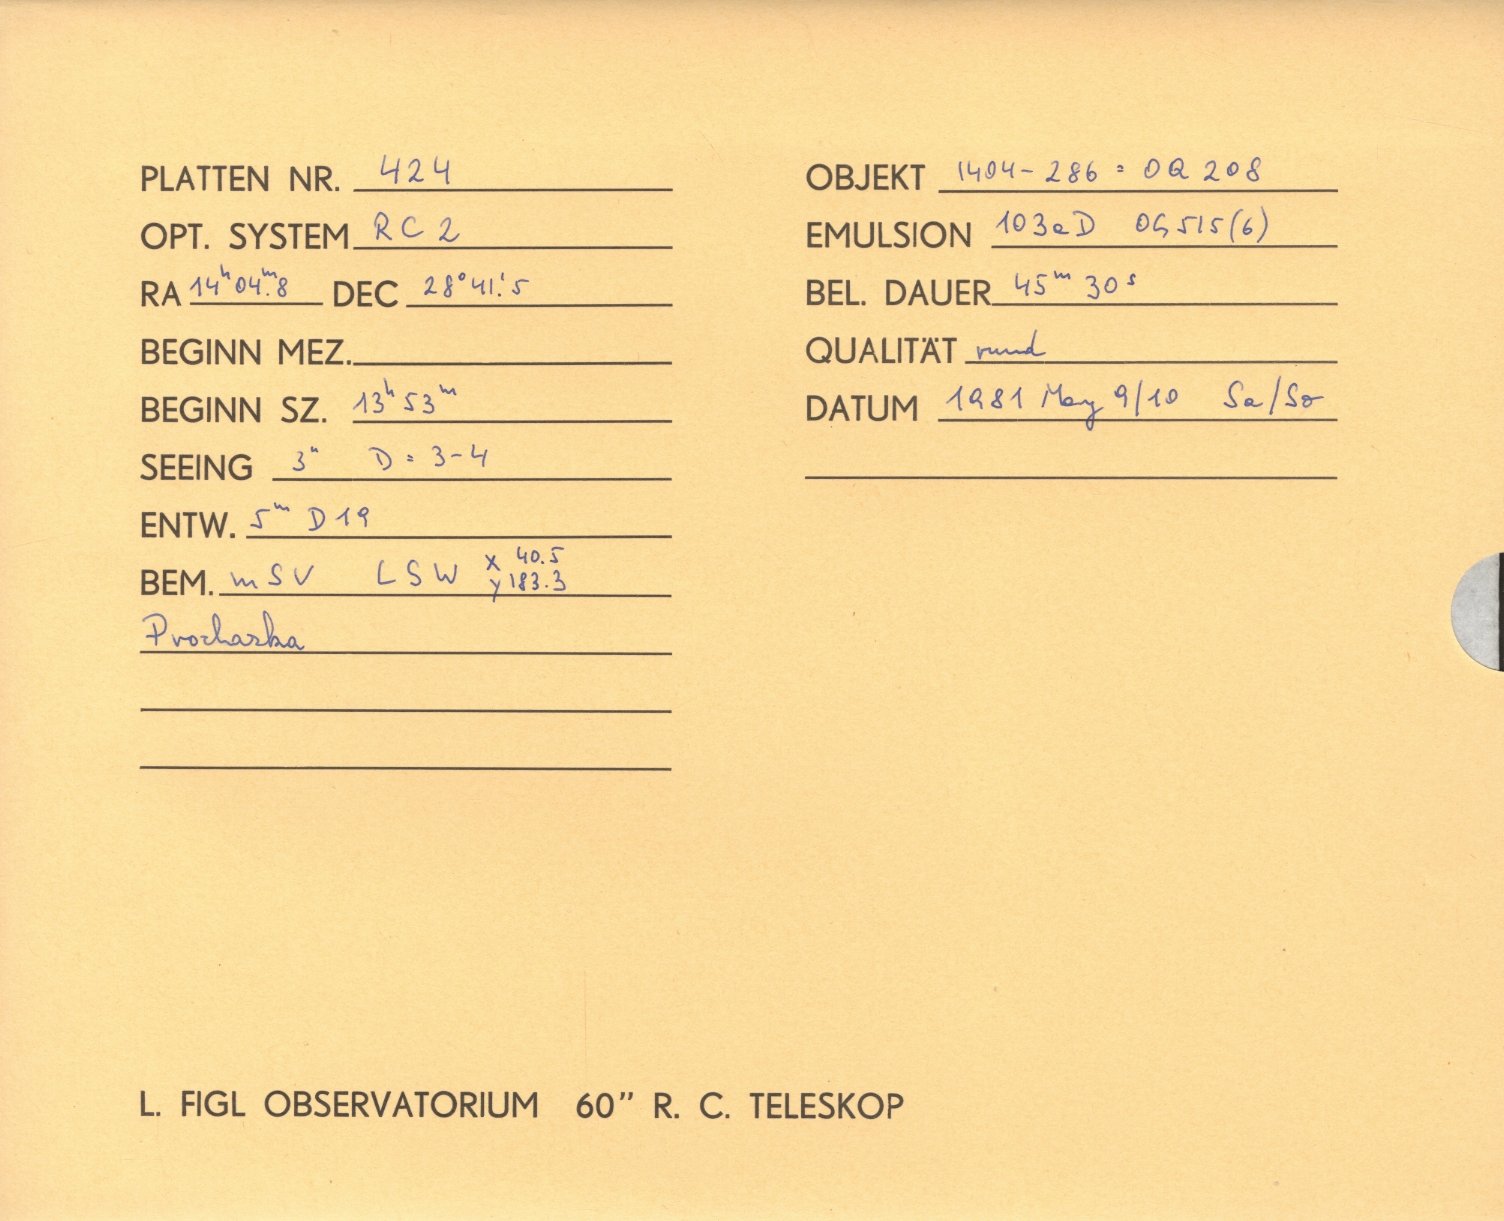 PLATTEN NR. 424
OPT. SYSTEM RC 2
RA 14h04m.8 DEC 28°41'.5
BEGINN MEZ.
BEGINN SZ. 13h 53m
SEEING 3" D = 3-4
ENTW. 5m D19
BEM. mSV LSW x 40.5
y 183.3
Prochaska
OBJEKT 1404-286 = OQ 208
EMULSION 103aD OG515(6)
BEL. DAUER 45m 30s
QUALITÄT rund
DATUM 1981 May 9/10 Sa/So
L. FIGL OBSERVATORIUM 60” R. C. TELESKOP